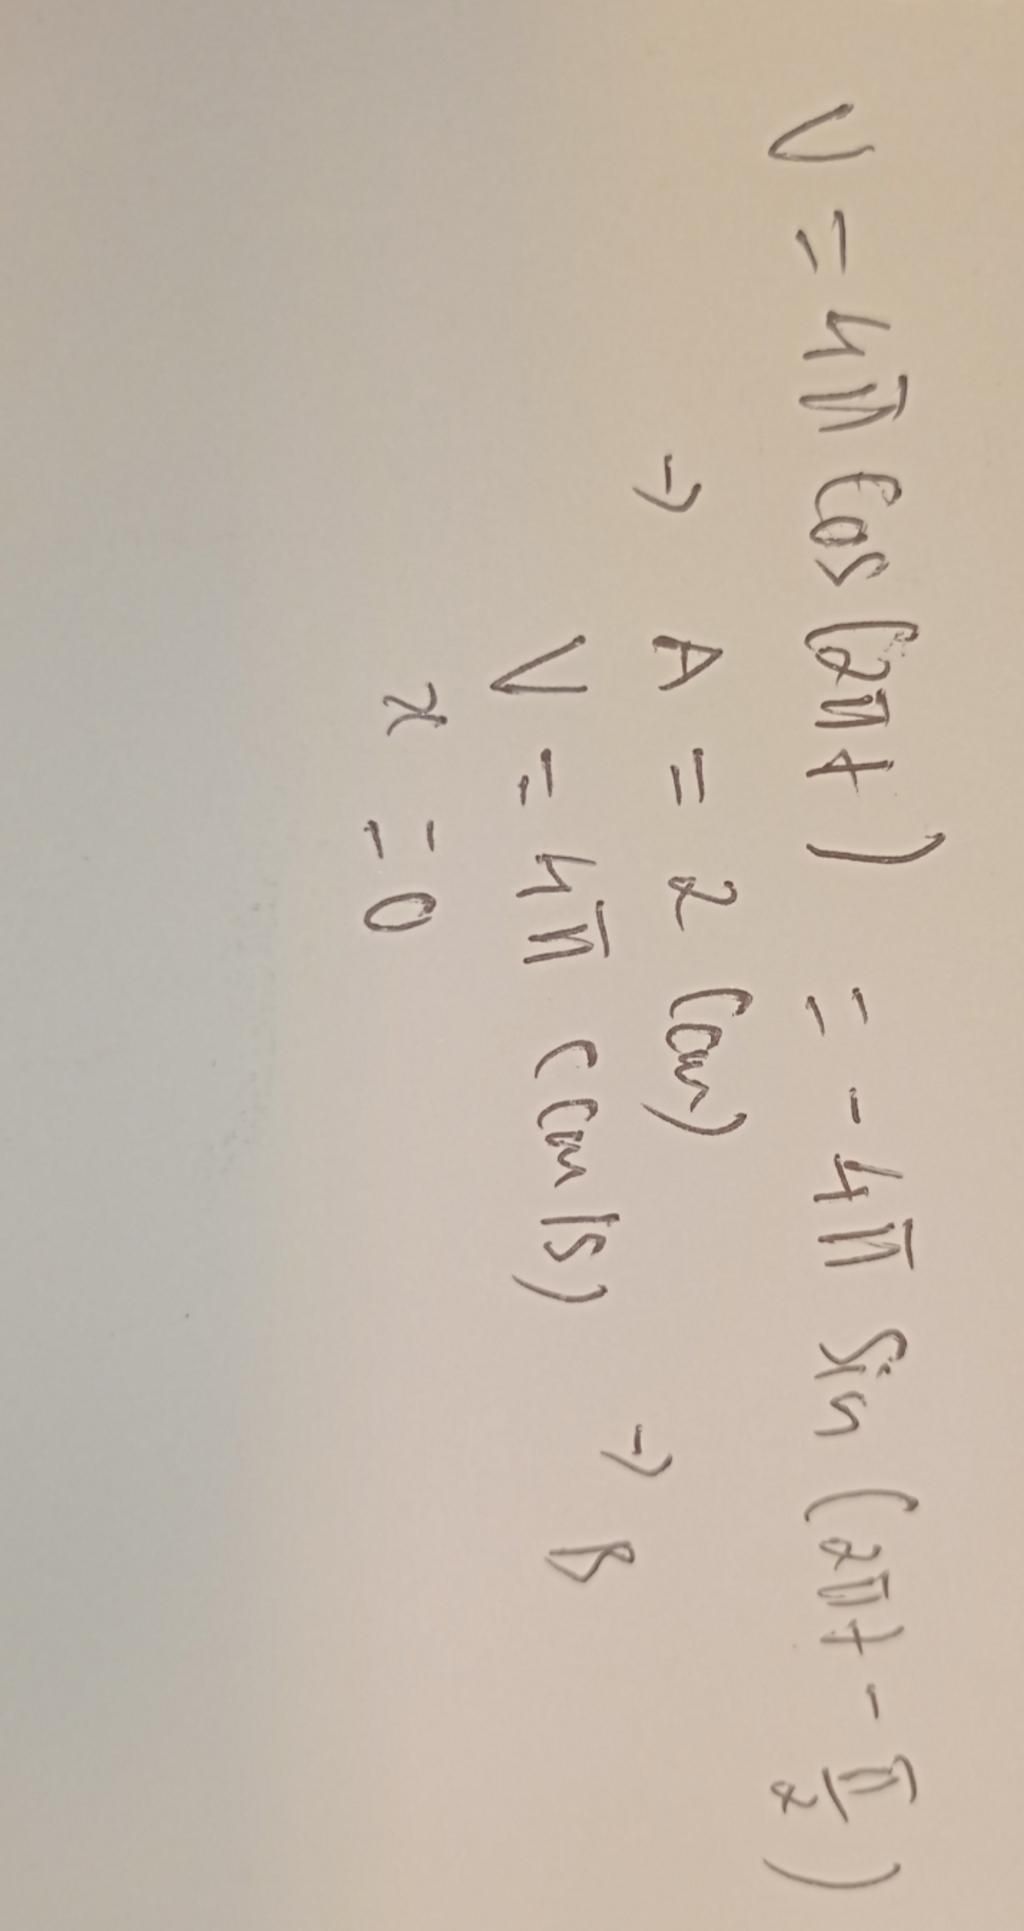 V = 4π cos(2πt) = - 4π sin(2πt - π/2)
→ A = 2 (cm)
V = 4π (cm/s) → B
x = 0